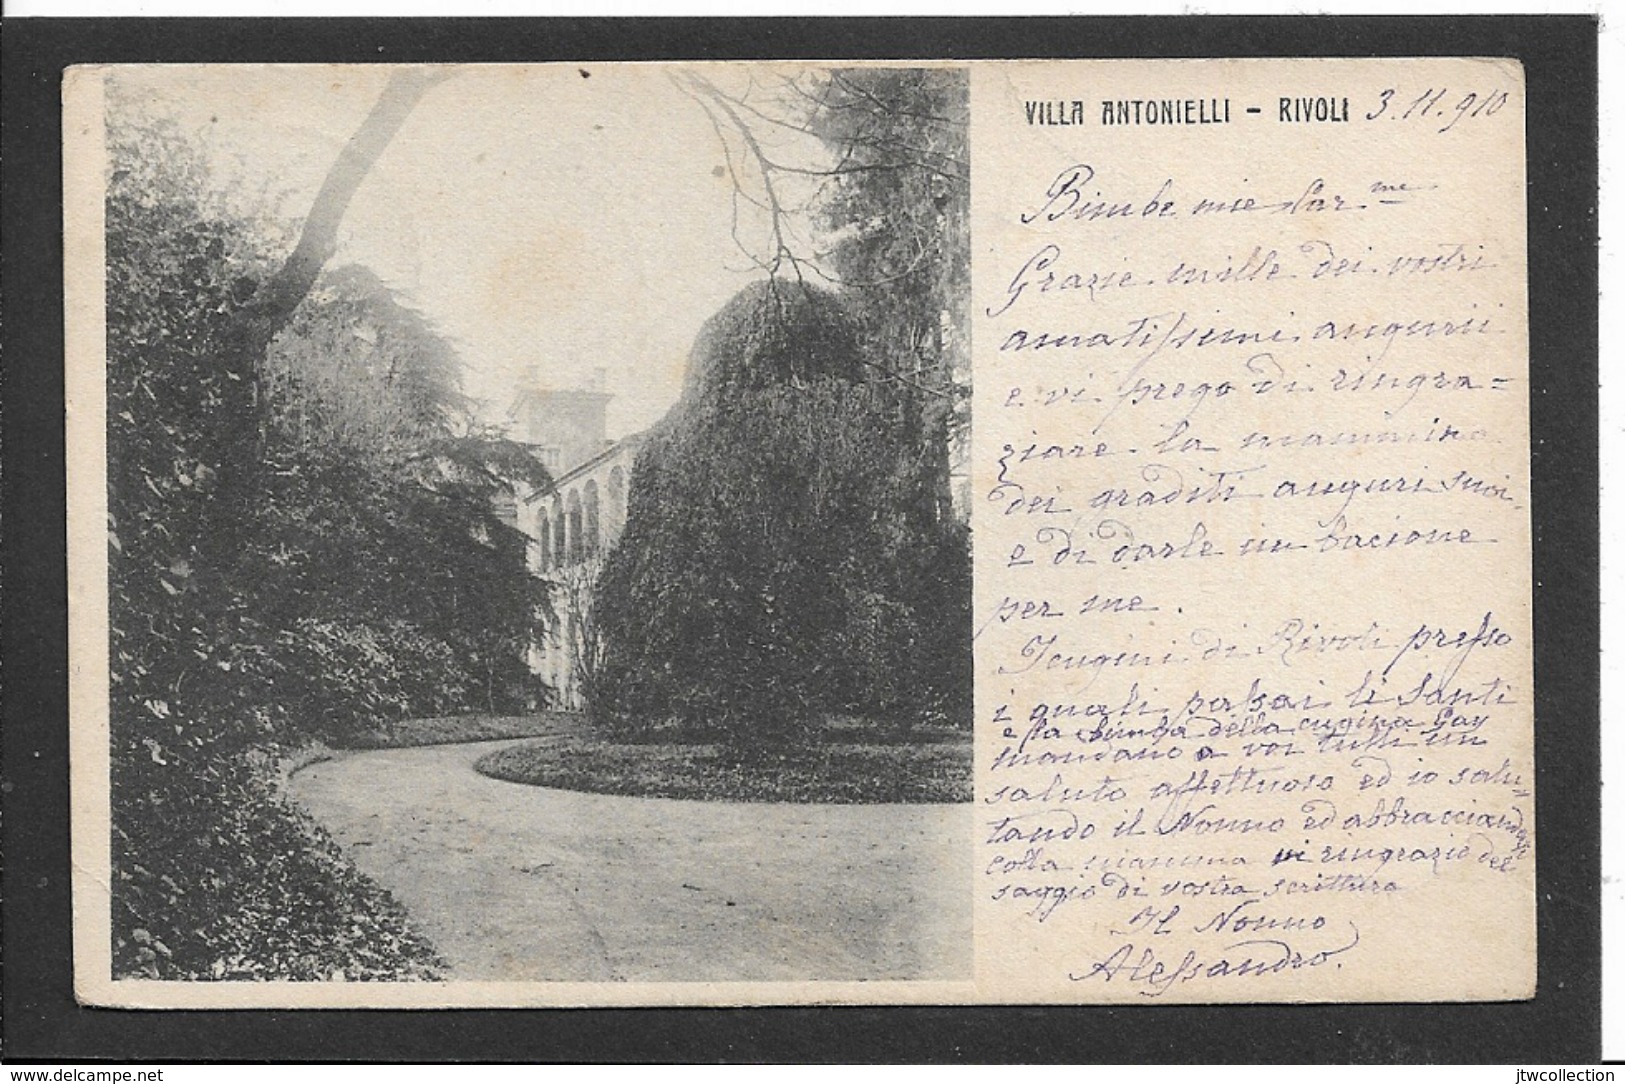 VILLA ANTONIELLI - RIVOLI 3.11.910
Bimbe mie Car.me
Grazie mille dei vostri
amatissimi augurii
e vi prego di ringra=
ziare la mammina
dei graditi auguri suoi
e di darle un bacione
per me.
I cugini di Rivoli presso
i quali passai li Santi
e la bimba della cugina Gay
mandano a voi tutti un
saluto affettuoso ed io salu=
tando il Nonno ed abbracciandovi
colla mamma vi ringrazio del
saggio di vostra scrittura
Il Nonno
Alessandro.
www.delcampe.net
jtwcollection